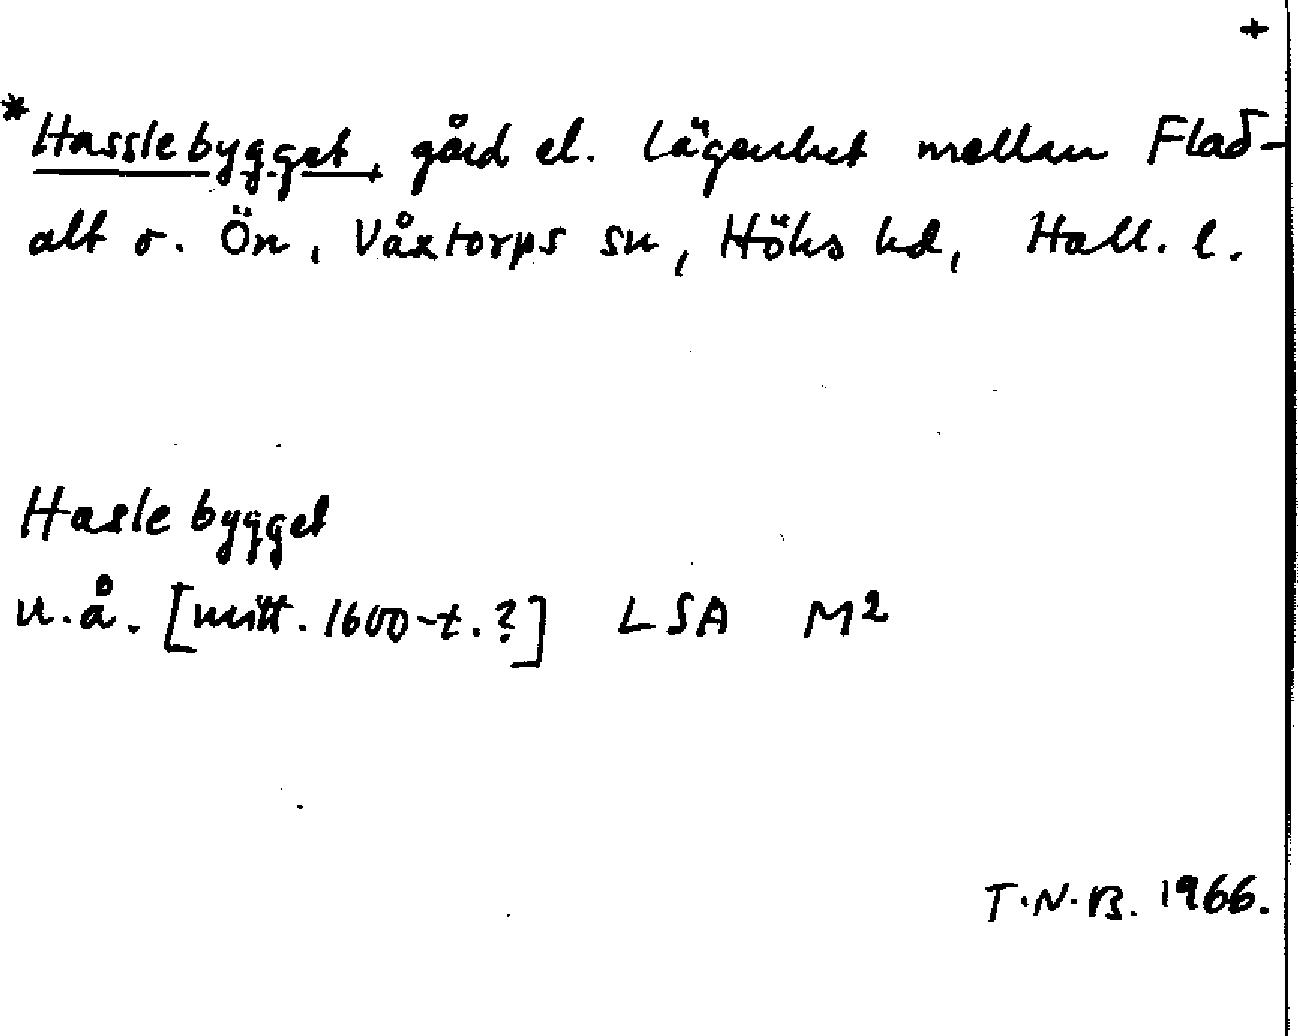 +
*Hasslebygget, gård el. lägenhet mellan Flad-
alt o. Ön, Våxtorps sn, Höks hd, Hall. l.
Haslebygget
u.å. [mitt. 1600-t.?] LSA M2
T.N.B. 1966.